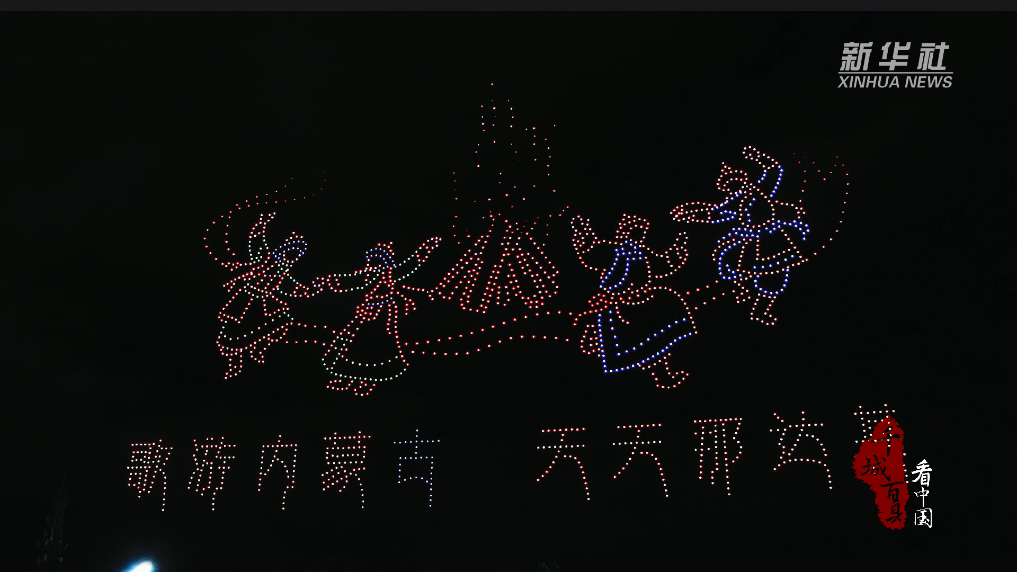 新华社
XINHUA NEWS
歌游内蒙古 天天那达慕
千城百县
看中国